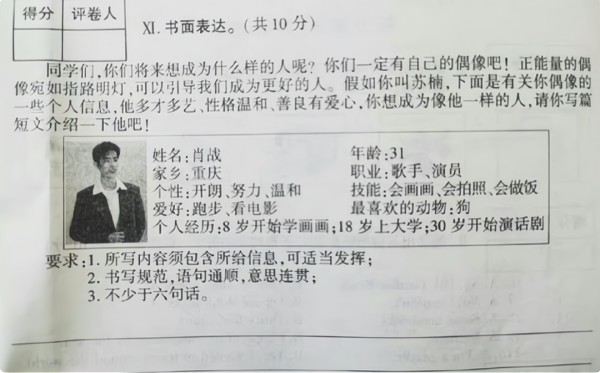 得分 评卷人
XI. 书面表达。(共 10 分)
同学们,你们将来想成为什么样的人呢?你们一定有自己的偶像吧!正能量的偶
像宛如指路明灯,可以引导我们成为更好的人。假如你叫苏楠,下面是有关你偶像的
一些个人信息,他多才多艺、性格温和、善良有爱心,你想成为像他一样的人,请你写篇
短文介绍一下他吧!
姓名:肖战 年龄:31
家乡:重庆 职业:歌手、演员
个性:开朗、努力、温和 技能:会画画、会拍照、会做饭
爱好:跑步、看电影 最喜欢的动物:狗
个人经历:8 岁开始学画画;18 岁上大学;30 岁开始演话剧
要求:1. 所写内容须包含所给信息,可适当发挥;
2. 书写规范,语句通顺,意思连贯;
3. 不少于六句话。